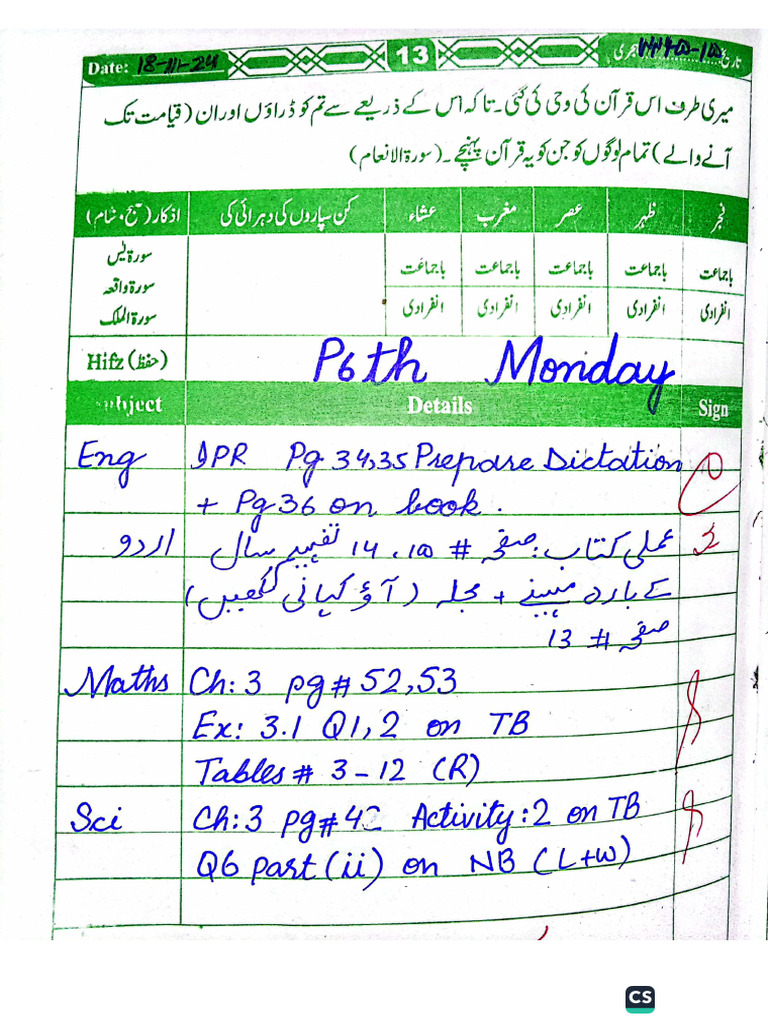 Date: 18-11-24 13 تاریخ ہجری
میری طرف اس قرآن کی وحی کی گئی۔ تاکہ اس کے ذریعے سے تم کو ڈراؤں اور ان (قیامت تک
آنے والے) تمام لوگوں کو جن کو یہ قرآن پہنچے۔ (سورۃ الانعام)
فجر ظہر عصر مغرب عشاء کن سپاروں کی دہرائی کی اذکار (صبح، شام)
باجماعت باجماعت باجماعت باجماعت باجماعت سورۃ یٰس
سورۃ واقعہ
انفرادی انفرادی انفرادی انفرادی انفرادی سورۃ الملک
Hifz (حفظ) P6th Monday
Subject Details Sign
Eng IPR Pg 34,35 Prepare Dictation
+ Pg 36 on book.
اردو عملی کتاب: صفحہ # 14، 15 تفہیم سال
کے بارہ مہینے + مجلہ (آؤ کہانی لکھیں)
صفحہ # 13
Maths Ch: 3 pg# 52,53
Ex: 3.1 Q1,2 on TB
Tables # 3-12 (R)
Sci Ch: 3 pg# 42 Activity: 2 on TB
Q6 part (ii) on NB (L+W)
CS